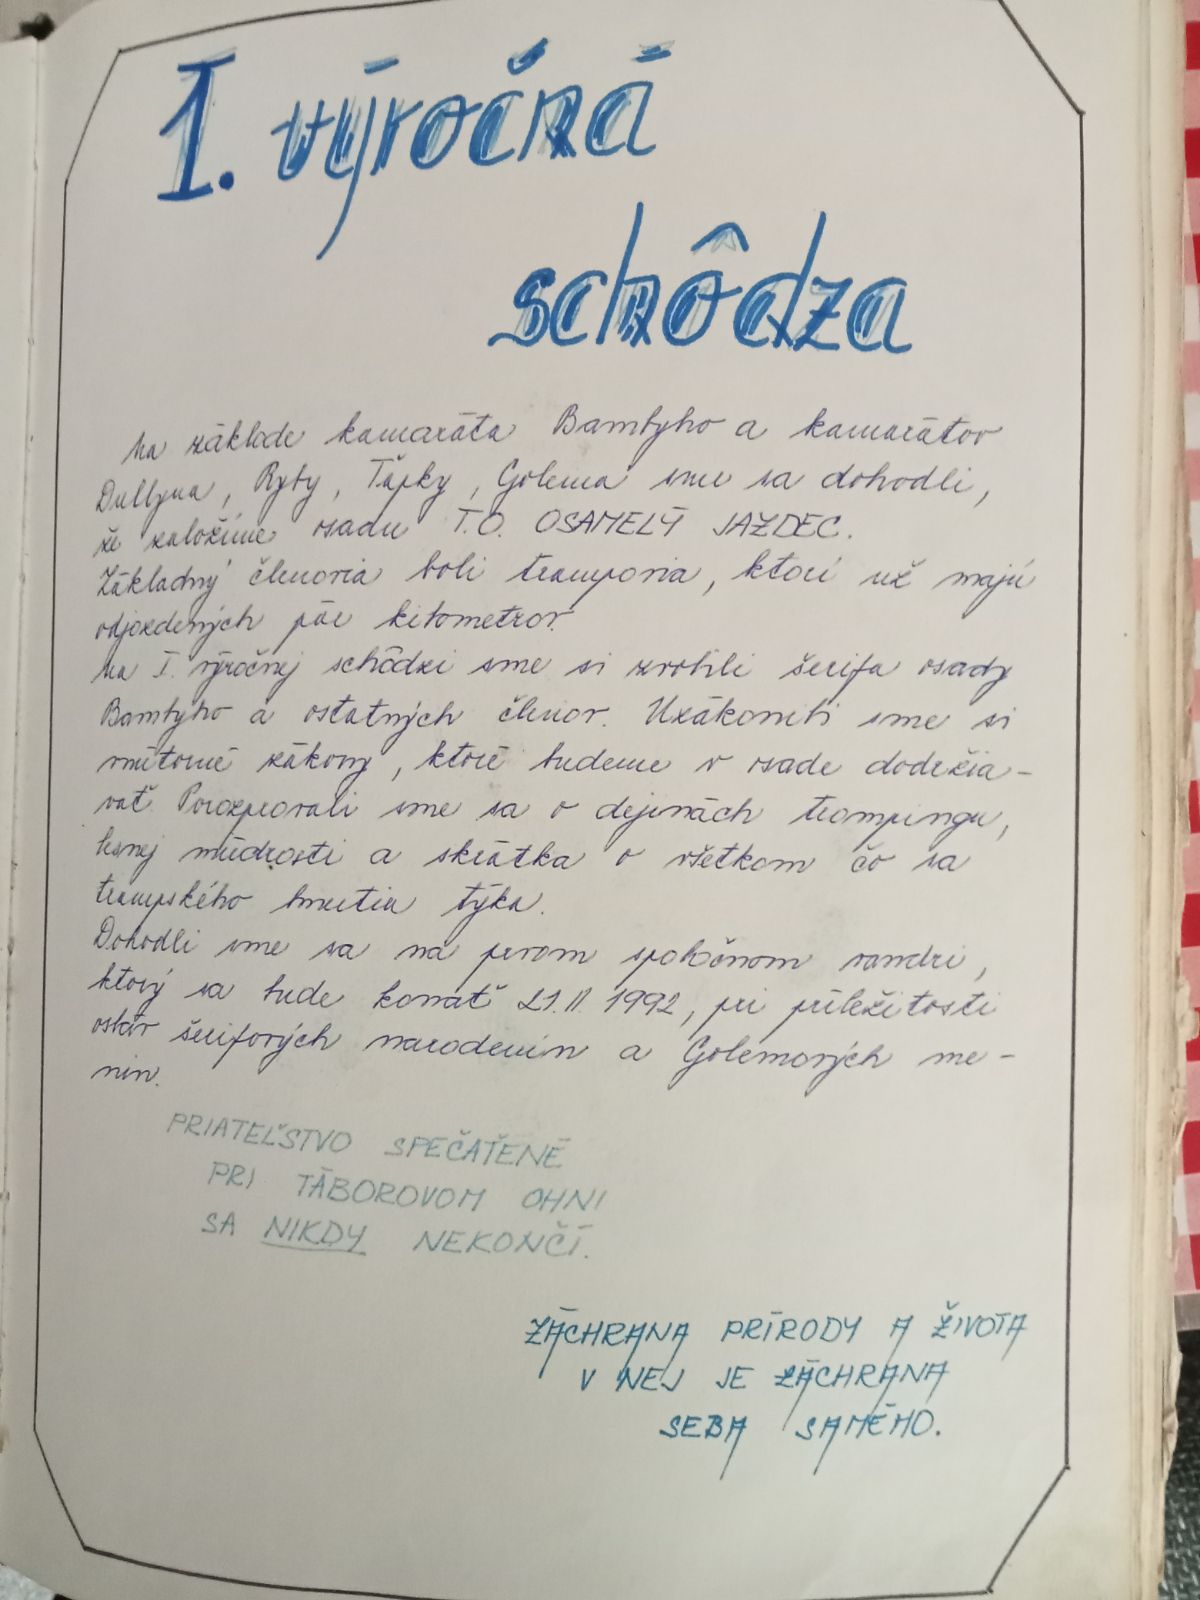 1. výročná
schôdza
Na základe kamaráta Bambyho a kamarátov
Dullyna, Ryby, Ťapky, Golema sme sa dohodli,
že založíme osadu T.O. OSAMELÝ JAZDEC.
Základný členovia boli trampovia, ktorí už majú
odjazdených pár kilometrov.
Na I. výročnej schôdzi sme si zvolili šerifa osady
Bambyho a ostatných členov. Uzákonili sme si
vnútorné zákony, ktoré budeme v osade dodržia-
vať. Porozprávali sme sa o dejinách trampingu,
lesnej múdrosti a skrátka o všetkom čo sa
trampského hnutia týka.
Dohodli sme sa na prvom spoločnom vandri,
ktorý sa bude konať 21.II. 1992, pri príležitosti
osláv šerifových narodenín a Golemových me-
nín.
PRIATEĽSTVO SPEČATENÉ
PRI TÁBOROVOM OHNI
SA NIKDY NEKONČÍ.
ZÁCHRANA PRÍRODY A ŽIVOTA
V NEJ JE ZÁCHRANA
SEBA SAMÉHO.